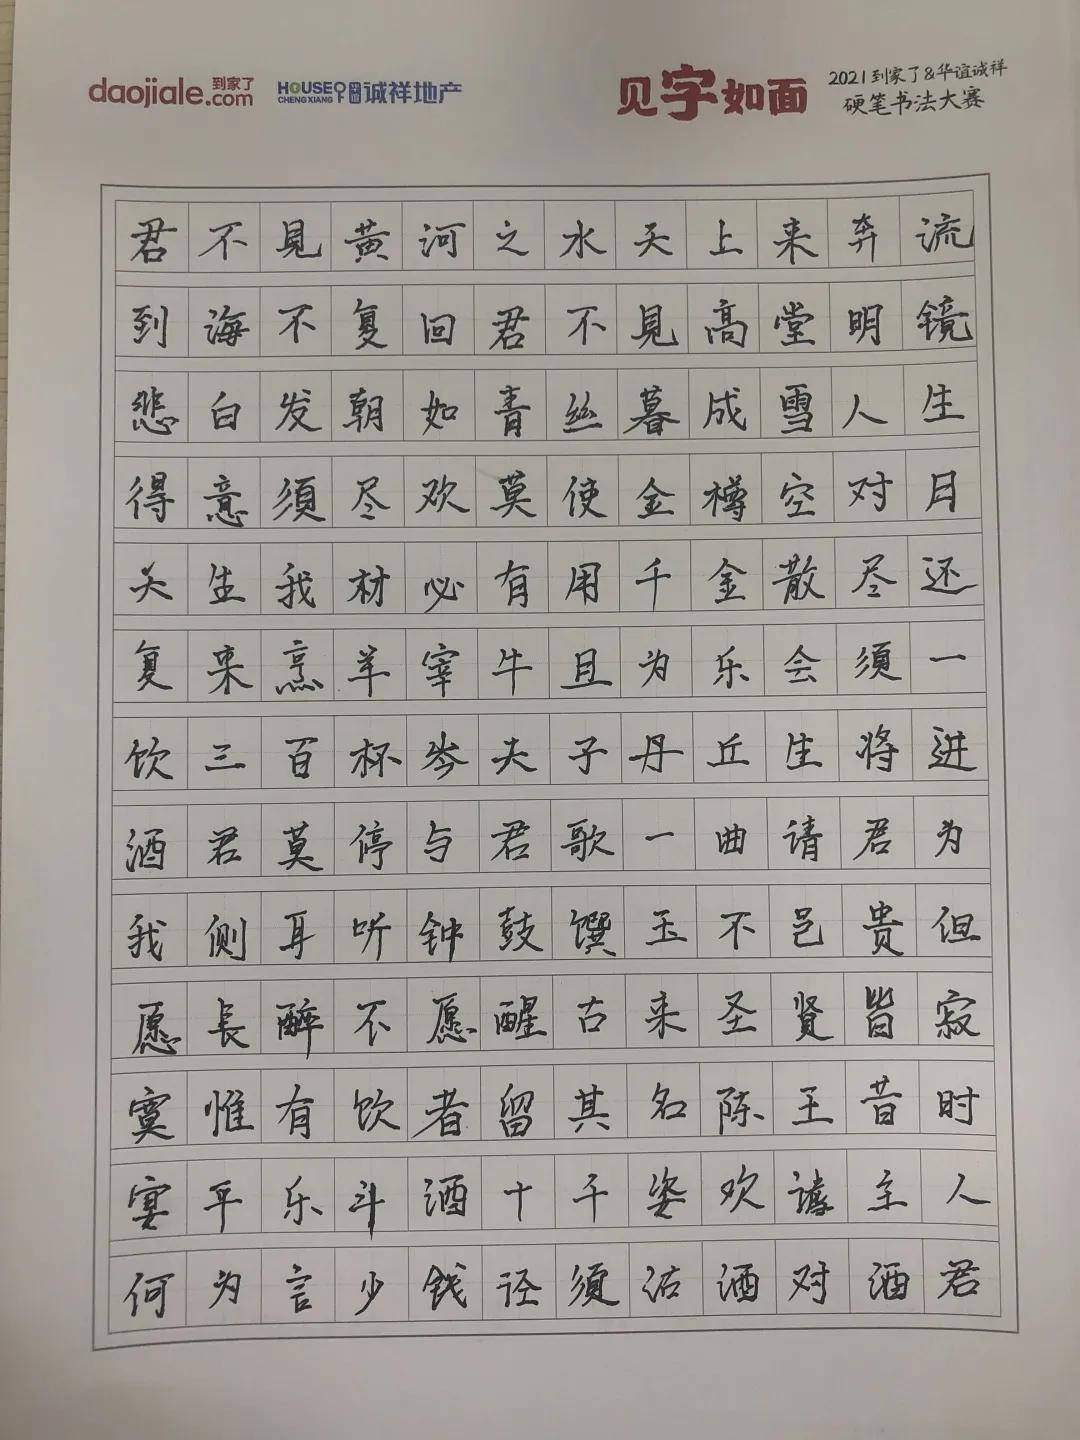 daojiale.com 到家了 HOUSE CHENGXIANG 诚祥地产 见字如面 2021到家了&华谊诚祥
硬笔书法大赛
君不見黄河之水天上来奔流
到海不复回君不見高堂明镜
悲白发朝如青丝暮成雪人生
得意须尽欢莫使金樽空对月
天生我材必有用千金散尽还
复来烹羊宰牛且为乐会须一
饮三百杯岑夫子丹丘生将进
酒君莫停与君歌一曲请君为
我侧耳听钟鼓馔玉不足贵但
愿長醉不愿醒古来圣贤皆寂
寞惟有饮者留其名陈王昔时
宴平乐斗酒十千姿欢谑主人
何为言少钱径须沽酒对酒君